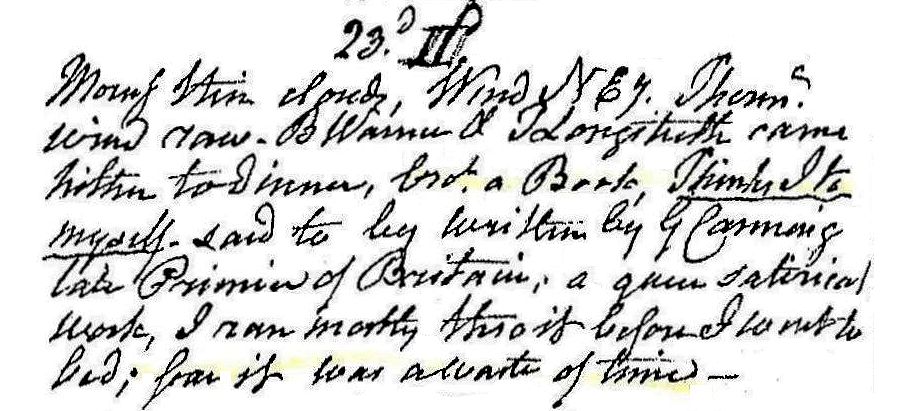 23.d
Morng thin clouds, Wind NE 7. Thermr.
wind raw - B Warner & J Longstreth came
hither to dinner, brot a Book, Thinks I to
myself - said to be written by G Canning
late Primier of Britain, a queer satirical
work, I ran mostly thro it before I went to
bed; fear it was a waste of time —